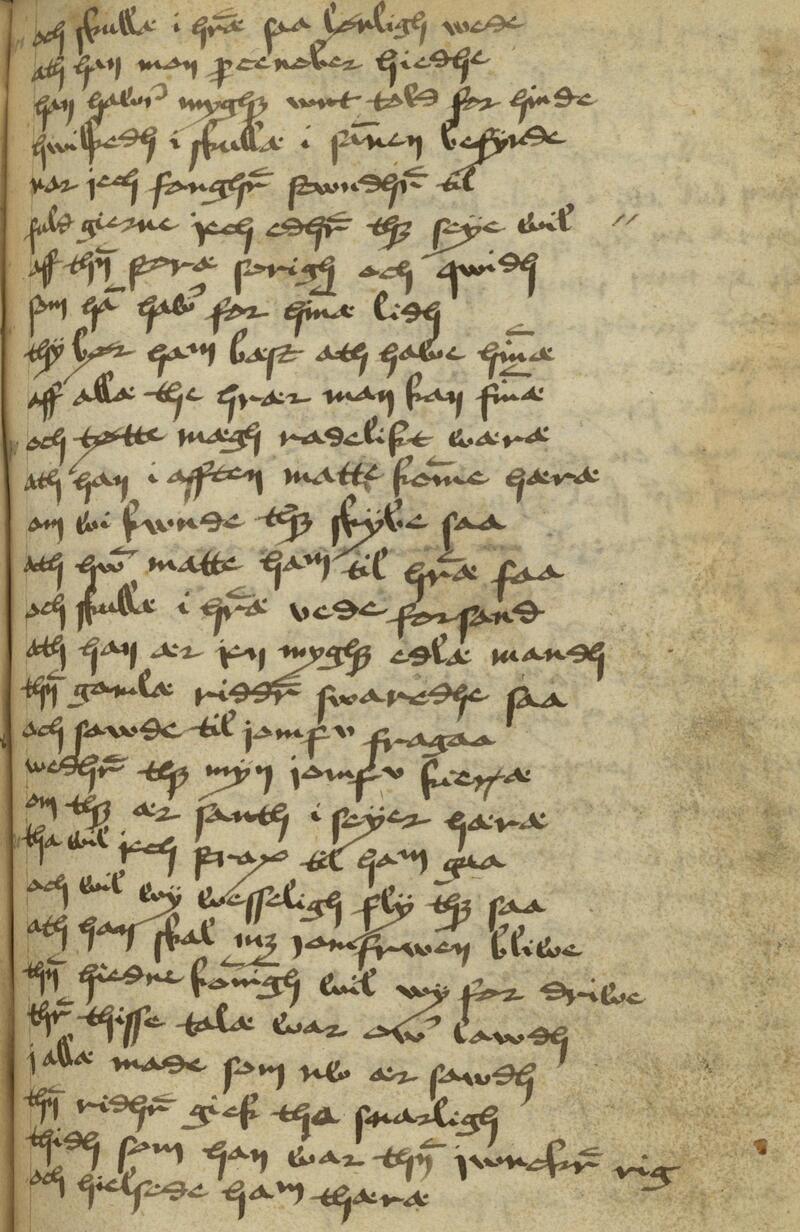 och skullæ i hr̄æ saa lønligh wede
ath han mon ꝑcenober hiedhe
han hawer myghꝫ wnt told for hinde
hwilkedh i skullæ i san̄en befynde
nar jech fongher̄ stwndher̄ til
fuld gierne jech edher̄ thꝫ seye wil
aff then̄ storæ sorigh och qwidh
som hā haw̄ for hin̄æ lidh
thy bør ham bæst ath hawe hin̄æ
aff allæ the hrær man kan fin̄æ
och tøtte mægh radelikt wæræ
ath han i afften matte kom̄e hæræ
om wi kwnde thꝫ skyble saa
ath hw̄ matte ham til hr̄æ faa
och skullæ i hr̄æ vede forsand
ath han ær jen myghꝫ edlæ mandh
then̄ gamlæ ridder̄ swaredhe saa
och sawde til jomfv fragaa
wedher̄ thꝫ myn jomfv kieræ
om thꝫ ær santh i seyer hæræ
tha wil jech strax til ham gaa
och wil wy wesseligh fly thꝫ saa
ath han skal mꝫ jomfrwen bliwe
then̄ hiedne kon̄īgh wil wy for driwe
ther̄ thisse talæ war ow̄ lawdh
j allæ made som nw ær sawdh
then̄ ridher̄ giek tha snarligh
thidh som han war then̄ jwncker̄ rig
och hielsede ham thæræ